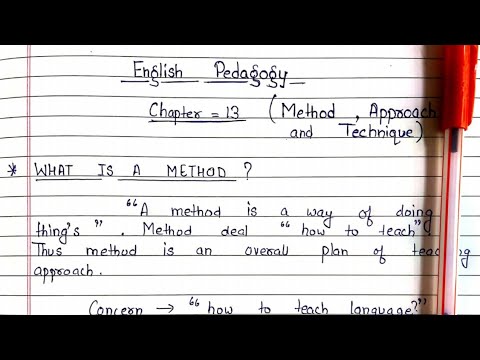 English Pedagogy
Chapter = 13 (Method, Approach
and Technique)
* WHAT IS A METHOD ?
"A method is a way of doing
thing's". Method deal "how to teach"
Thus method is an overall plan of teaching
approach.
Concern → "how to teach language?"